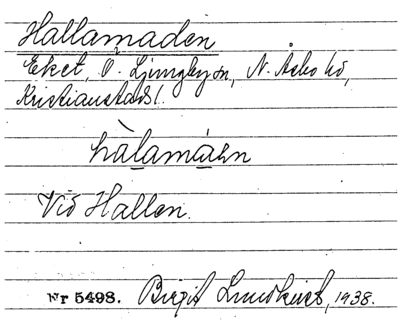 Hallamaden
Eket, Ö. Ljungby sn, N. Åsbo hd,
Kristianstads l.
hàlamáen
Vid Hallen.
Nr 5498. Birgit Lundkvist, 1938.